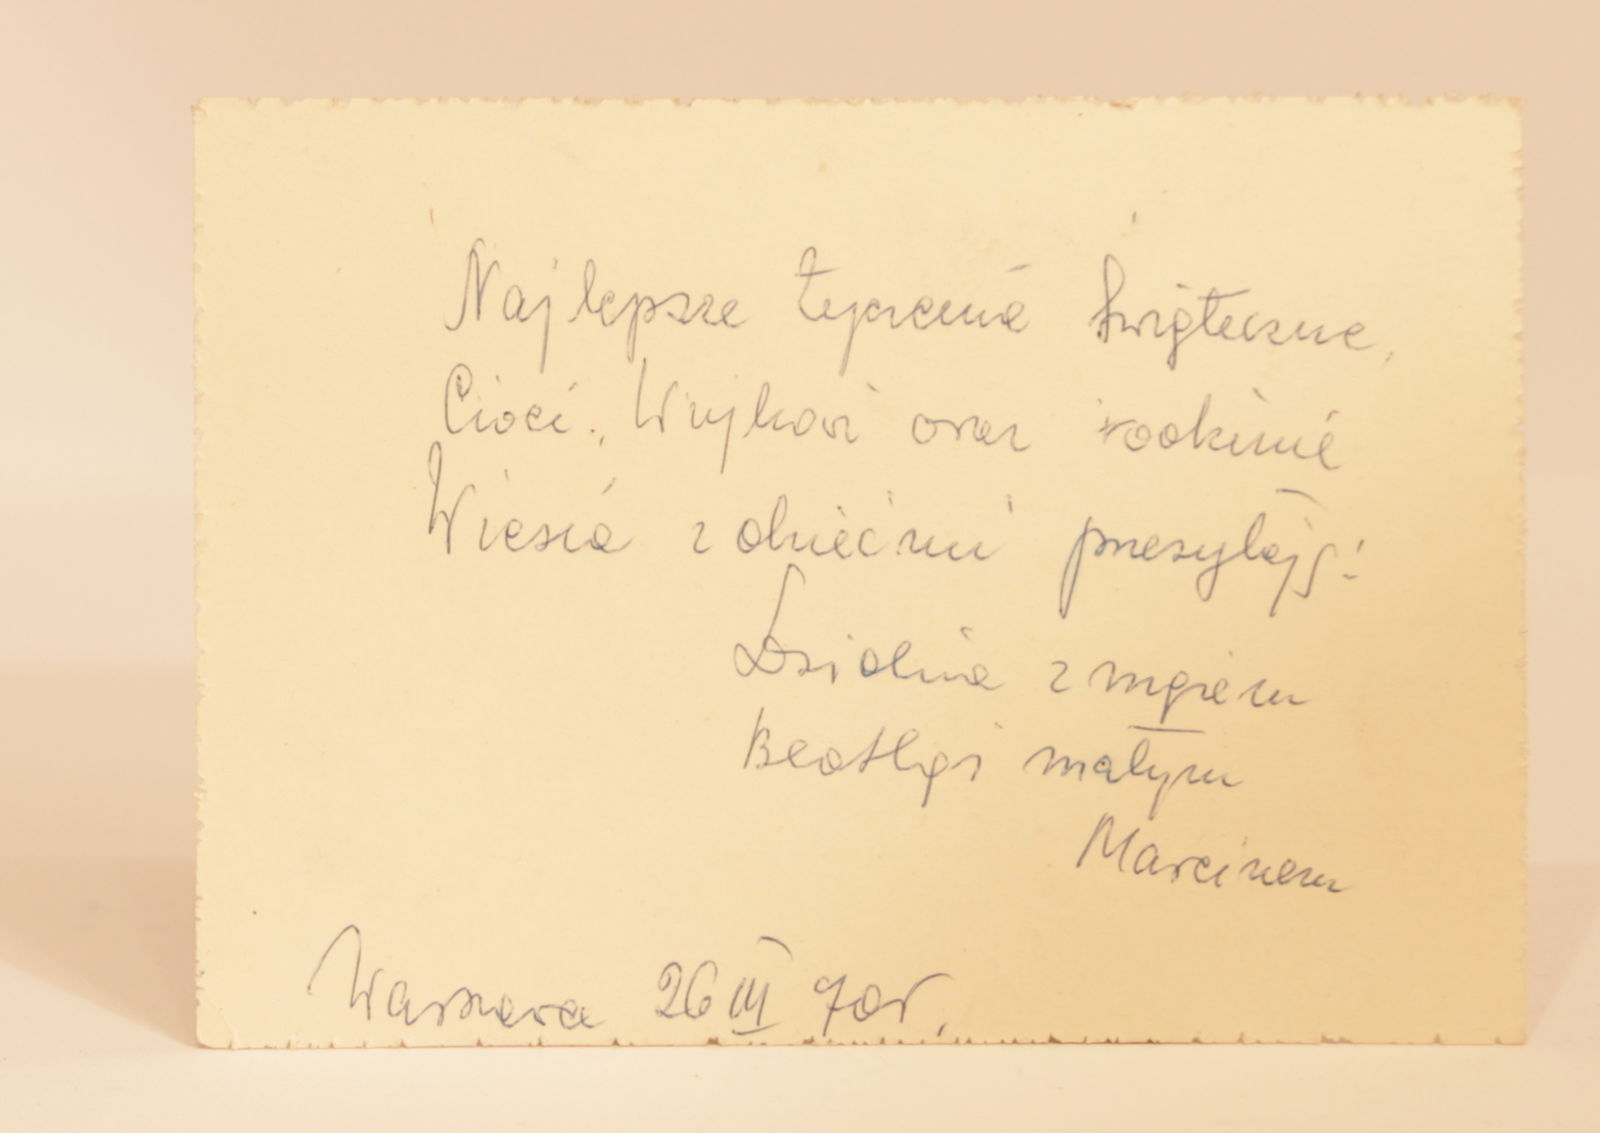 Najlepsze życzenia Świąteczne,
Cioci, Wujkowi oraz rodzinie
Wiesia z dziećmi przesyłają:
z mężem
Beatką i małym
Marcinem
Warszawa 26 III 70r.